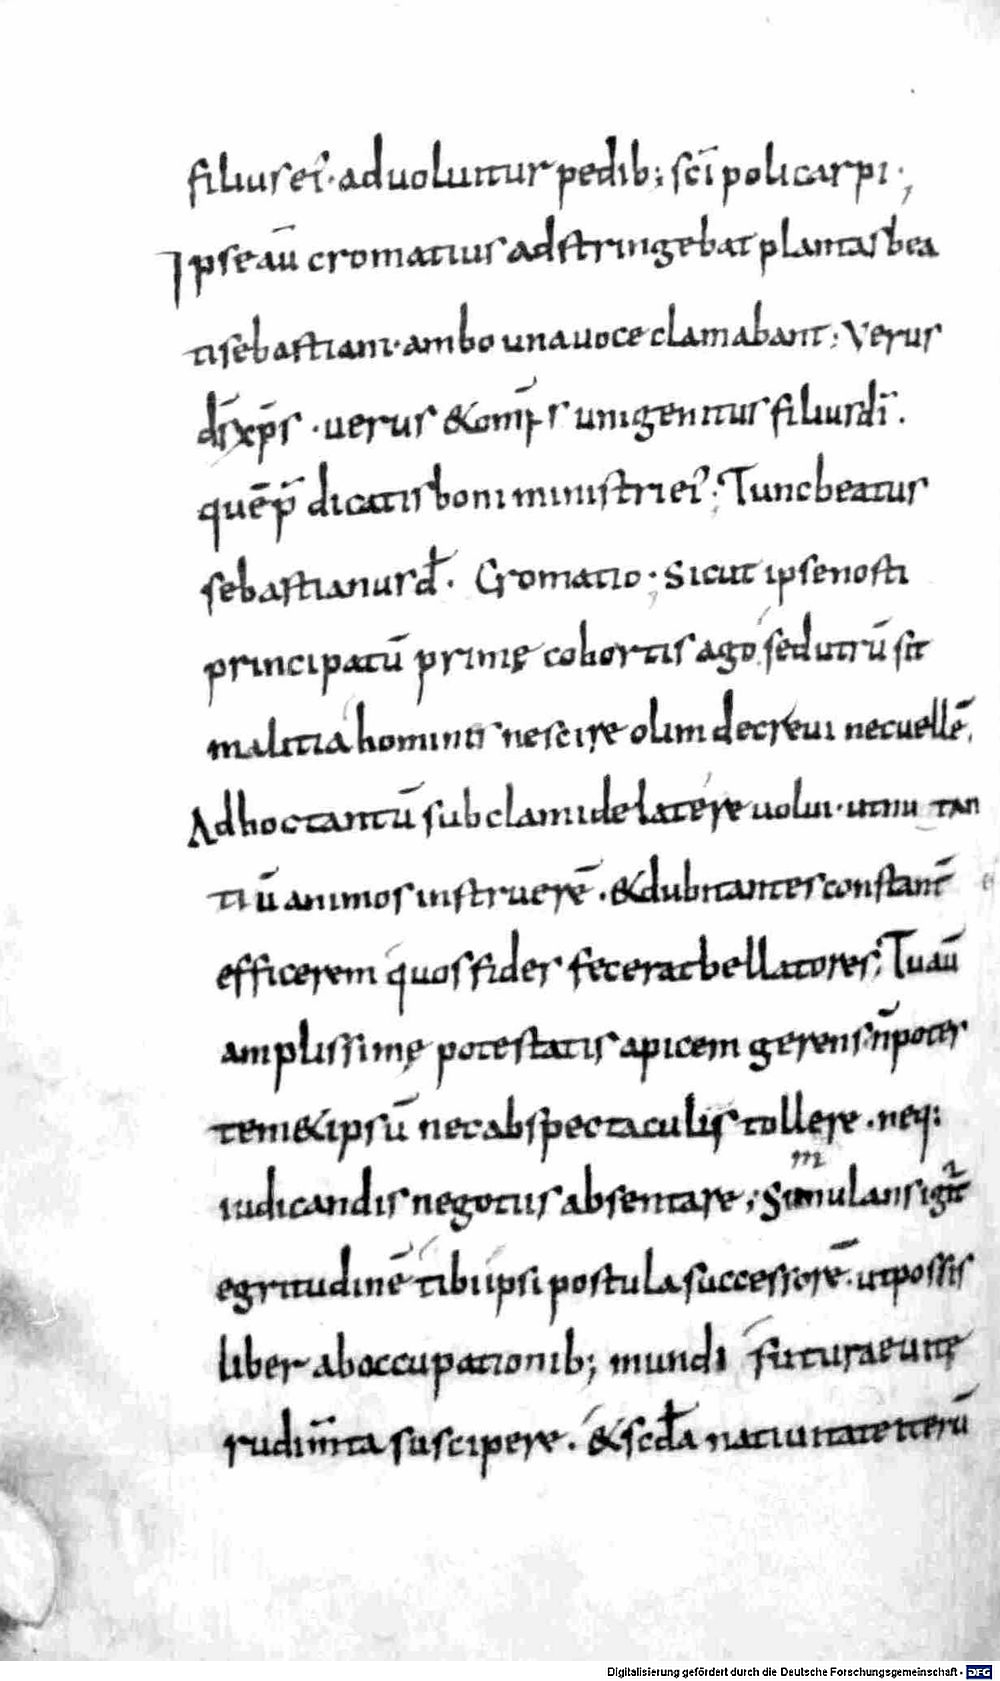 filius ei᷒· aduoluitur pedib; sc̄i policarpi·,
Ipse aū cromatius adstringebat plantas bea
ti sebastiani· ambo una uoce clamabant; Verus
d̄s xp̄s · uerus & om̄ps unigenitus filius dī.
quē p̄dicatis boni ministri ei᷒; Tunc beatus
sebastianus đ. Cromatio; Sicut ipse nosti
principatū primę cohortis ago, sed utrū sit
malitia hominis nescire olim decreui nec uellē.
Ad hoc tantū sub clamide latere uolui· ut nu tan
tiū animos instruerē · & dubitantes constant̄
efficerem quos fides fecerat bellatores; Tu aū
amplissimę potestatis apicem gerens n̄ potes
temet ipsū nec ab spectaculis tollere · neq;
iudicandis negotiis absentare; Simulans igit᷑
egritudinē tibi ipsi postula successorē· ut possis
liber ab occupationib; mundi futurae uitę
rudim̄ta suscipere. & scđa natiuitate iterū
Digitalisierung gefördert durch die Deutsche Forschungsgemeinschaft - DFG